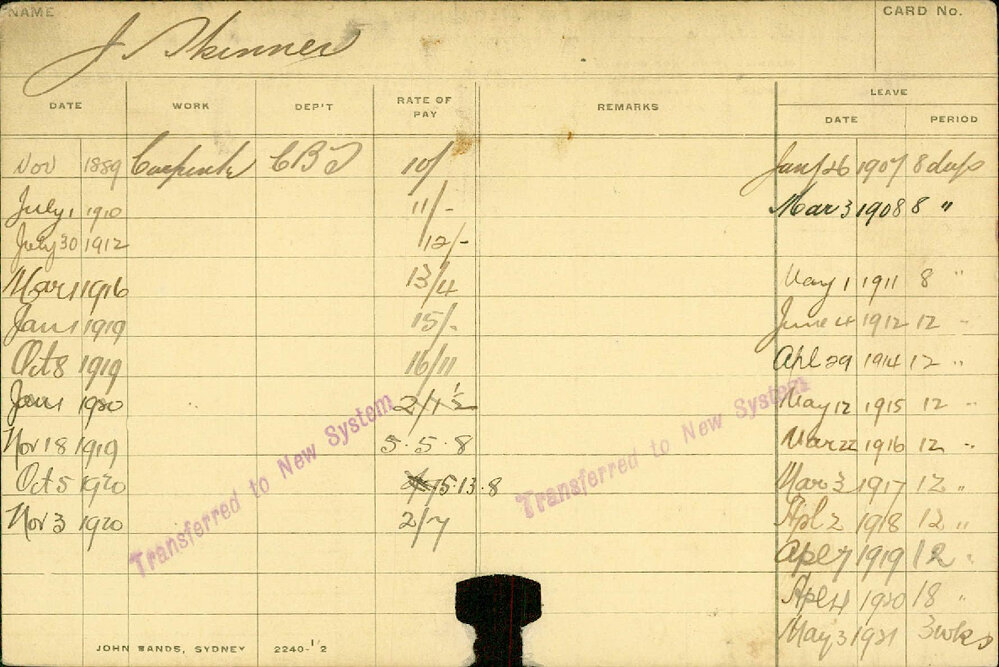 NAME
CARD No.
J Skinner
DATE WORK DEP'T RATE OF PAY REMARKS LEAVE
DATE PERIOD
Nov 1889 Carpenter CBJ 10/ Jany 26 1907 8 days
July 1 1910 11/- Mar 3 1908 8 "
July 30 1912 12/-
Mar 1 1916 13/4 May 1 1911 8 "
Jan 1 1919 15/- June 4 1912 12 "
Oct 8 1919 16/11 Apl 29 1914 12 "
Jan 1 1920 2/1 1/2 May 12 1915 12 "
Nov 18 1919 5.5.8 Mar 22 1916 12 "
Oct 5 1920 5.13.8 Mar 3 1917 12 "
Nov 3 1920 2/7 Apl 2 1918 12 "
Apl 7 1919 12 "
Apl 4 1920 18 "
May 3 1921 3 wks
Transferred to New System
Transferred to New System
JOHN SANDS, SYDNEY 2240-1/2